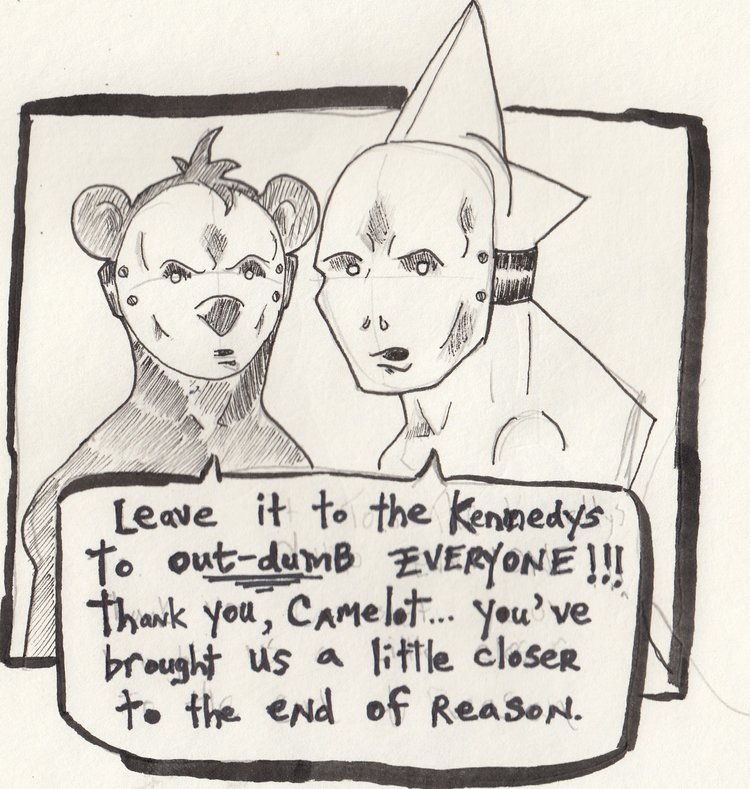 Leave it to the Kennedys
to out-dumb EVERYONE!!!
thank you, Camelot... you've
brought us a little closer
to the end of Reason.